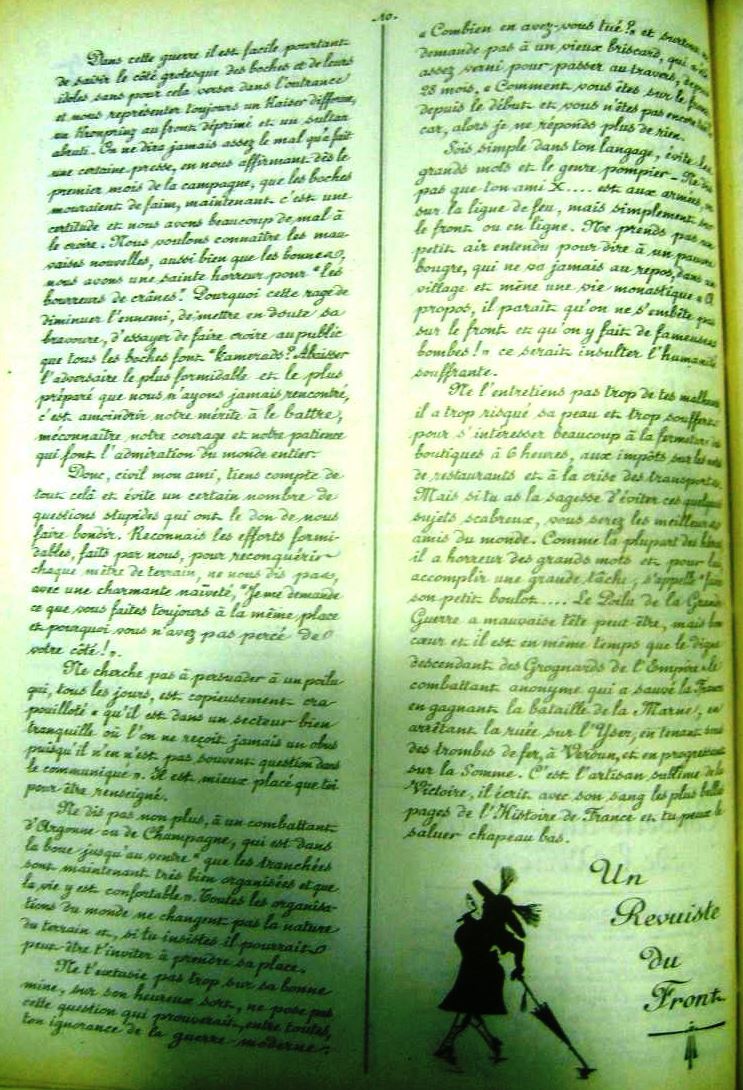 10.
Dans cette guerre il est facile pourtant
de saisir le côté grotesque des boches et de leurs
idoles sans pour cela verser dans l'outrance
et nous représenter toujours un Kaiser difforme,
un Kronprinz au front déprimé et un sultan
abruti. On ne dira jamais assez le mal qu'a fait
une certaine presse, en nous affirmant dès le
premier mois de la campagne, que les boches
mouraient de faim, maintenant c'est une
certitude et nous avons beaucoup de mal à
le croire. Nous voulons connaître les mau-
vaises nouvelles, aussi bien que les bonnes,
nous avons une sainte horreur pour "les
bourreurs de crânes". Pourquoi cette rage de
diminuer l'ennemi, de mettre en doute sa
bravoure, d'essayer de faire croire au public
que tous les boches font "kamerads? Abaisser
l'adversaire le plus formidable et le plus
préparé que nous n'ayons jamais rencontré,
c'est amoindrir notre mérite à le battre,
méconnaître notre courage et notre patience
qui font l'admiration du monde entier.
Donc, civil mon ami, tiens compte de
tout celà et évite un certain nombre de
questions stupides qui ont le don de nous
faire bondir. Reconnais les efforts formi-
dables, faits par nous, pour reconquérir
chaque mètre de terrain, ne nous dis pas,
avec une charmante naïveté, "Je me demande
ce que vous faites toujours à la même place
et pourquoi vous n'avez pas percé de
votre côté!".
Ne cherche pas à persuader à un poilu
qui, tous les jours, est copieusement cra-
pouilloté « qu'il est dans un secteur bien
tranquille où l'on ne reçoit jamais un obus
puisqu'il n'en n'est pas souvent question dans
le communiqué ». Il est mieux placé que toi
pour être renseigné.
Ne dis pas non plus, à un combattant
d'Argonne ou de Champagne, qui est dans
la boue jusqu'au ventre "que les tranchées
sont maintenant très bien organisées et que
la vie y est confortable ». Toutes les organisa-
tions du monde ne changent pas la nature
du terrain et, si tu insistes il pourrait
peut-être t'inviter à prendre sa place.
Ne t'extasie pas trop sur sa bonne
mine, sur son heureux sort, ne pose pas
cette question qui prouverait, entre toutes,
ton ignorance de la guerre moderne.
« Combien en avez-vous tué? » et surtout
demande pas à un vieux briscard, qui a été
assez verni pour passer au travers, depuis
28 mois, « Comment vous êtes sur le front
depuis le début et vous n'êtes pas encore
car, alors je ne réponds plus de rien.
Sois simple dans ton langage, évite les
grands mots et le genre pompier - Ne dis
pas que ton ami X.... est aux armées,
sur la ligne de feu, mais simplement sur
le front ou en ligne. Ne prends pas un
petit air entendu pour dire à un pauvre
bougre, qui ne va jamais au repos, dans un
village et mène une vie monastique « A
propos, il paraît qu'on ne s'embête pas
sur le front et qu'on y fait de fameuses
bombes! » ce serait insulter l'humanité
souffrante.
Ne l'entretiens pas trop de tes malheurs
il a trop risqué sa peau et trop souffert
pour s'intéresser beaucoup à la fermeture des
boutiques à 6 heures, aux impôts sur les notes
de restaurants et à la crise des transports.
Mais si tu as la sagesse d'éviter ces quelques
sujets scabreux, vous serez les meilleurs
amis du monde. Comme la plupart des héros
il a horreur des grands mots et pour lui
accomplir une grande tâche, s'appelle "faire
son petit boulot.... Le Poilu de la Grande
Guerre a mauvaise tête peut être, mais bon
cœur et il est en même temps que le digne
descendant des Grognards de l'Empire « le
combattant anonyme qui a sauvé la France
en gagnant la bataille de la Marne, en
arrêtant la ruée sur l'Yser, en tenant sous
des trombes de fer, à Verdun, et en progressant
sur la Somme. C'est l'artisan sublime de la
Victoire, il écrit avec son sang les plus belles
pages de l'Histoire de France et tu peux le
saluer chapeau bas.
Un
Revuiste
du
Front